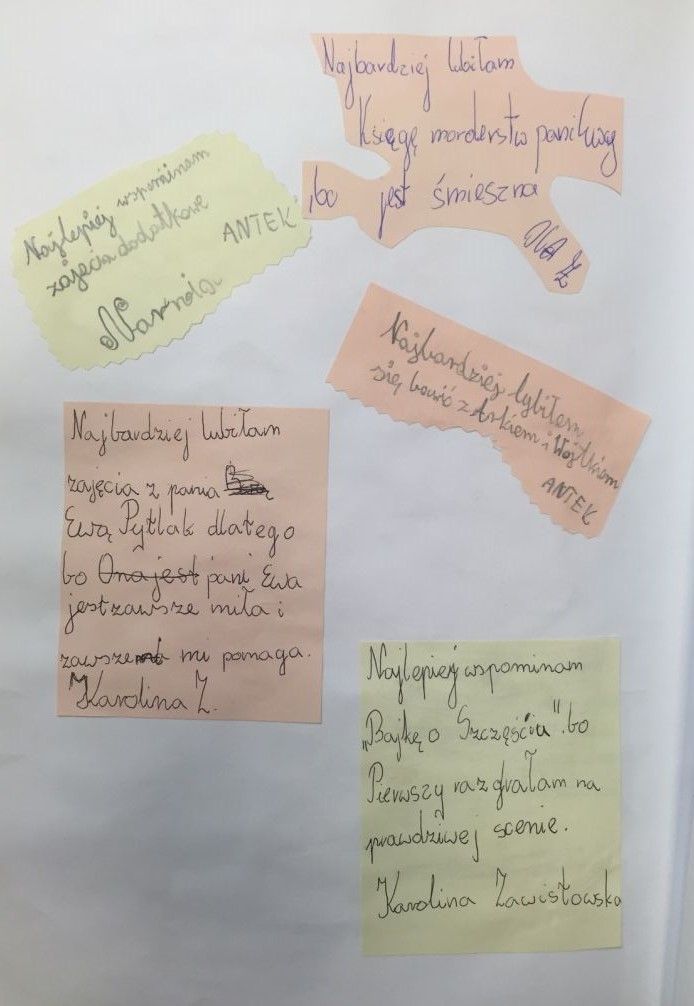 Najbardziej lubiłam
Księgę morderstw pani Ewy
, bo jest śmieszna
Ola Z
Najlepiej wspominam
zajęcia dodatkowe
ANTEK
Narnia
Najbardziej lybiłem
się bawić z Arkiem i Wojtkiem
ANTEK
Najbardziej lubiłam
zajęcia z pania
Ewą Pytlak dlatego
bo Ona jest pani Ewa
jest zawsze miła i
zawsze mi pomaga.
Karolina Z.
Najlepiej wspominam
„Bajkę o Szczęściu". bo
Pierwszy raz grałam na
prawdziwej scenie.
Karolina Zawistowska